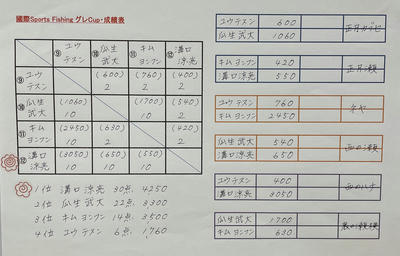 國際Sports Fishing グレCup・成績表
⑨ ユウテスン
⑩ 瓜生武大
⑪ キムヨンフン
⑫ 溝口涼亮
⑨ ユウテスン (600) 2 (760) 2 (400) 2
⑩ 瓜生武大 (1060) 10 (1700) 10 (540) 2
⑪ キムヨンフン (2450) 10 (630) 2 (420) 2
⑫ 溝口涼亮 (3050) 10 (650) 10 (550) 10
1位 溝口涼亮 30点 4250
2位 瓜生武大 22点 3300
3位 キムヨンフン 14点 3500
4位 ユウテスン 6点 1760
ユウテスン 600
瓜生武大 1060
キムヨンフン 420 正月瀬
溝口涼亮 550
ユウテスン 760
キムヨンフン 2450
瓜生武大 540 西の瀬
溝口涼亮 650
ユウテスン 400 西のハナ
溝口涼亮 3050
瓜生武大 1700
キムヨンフン 630